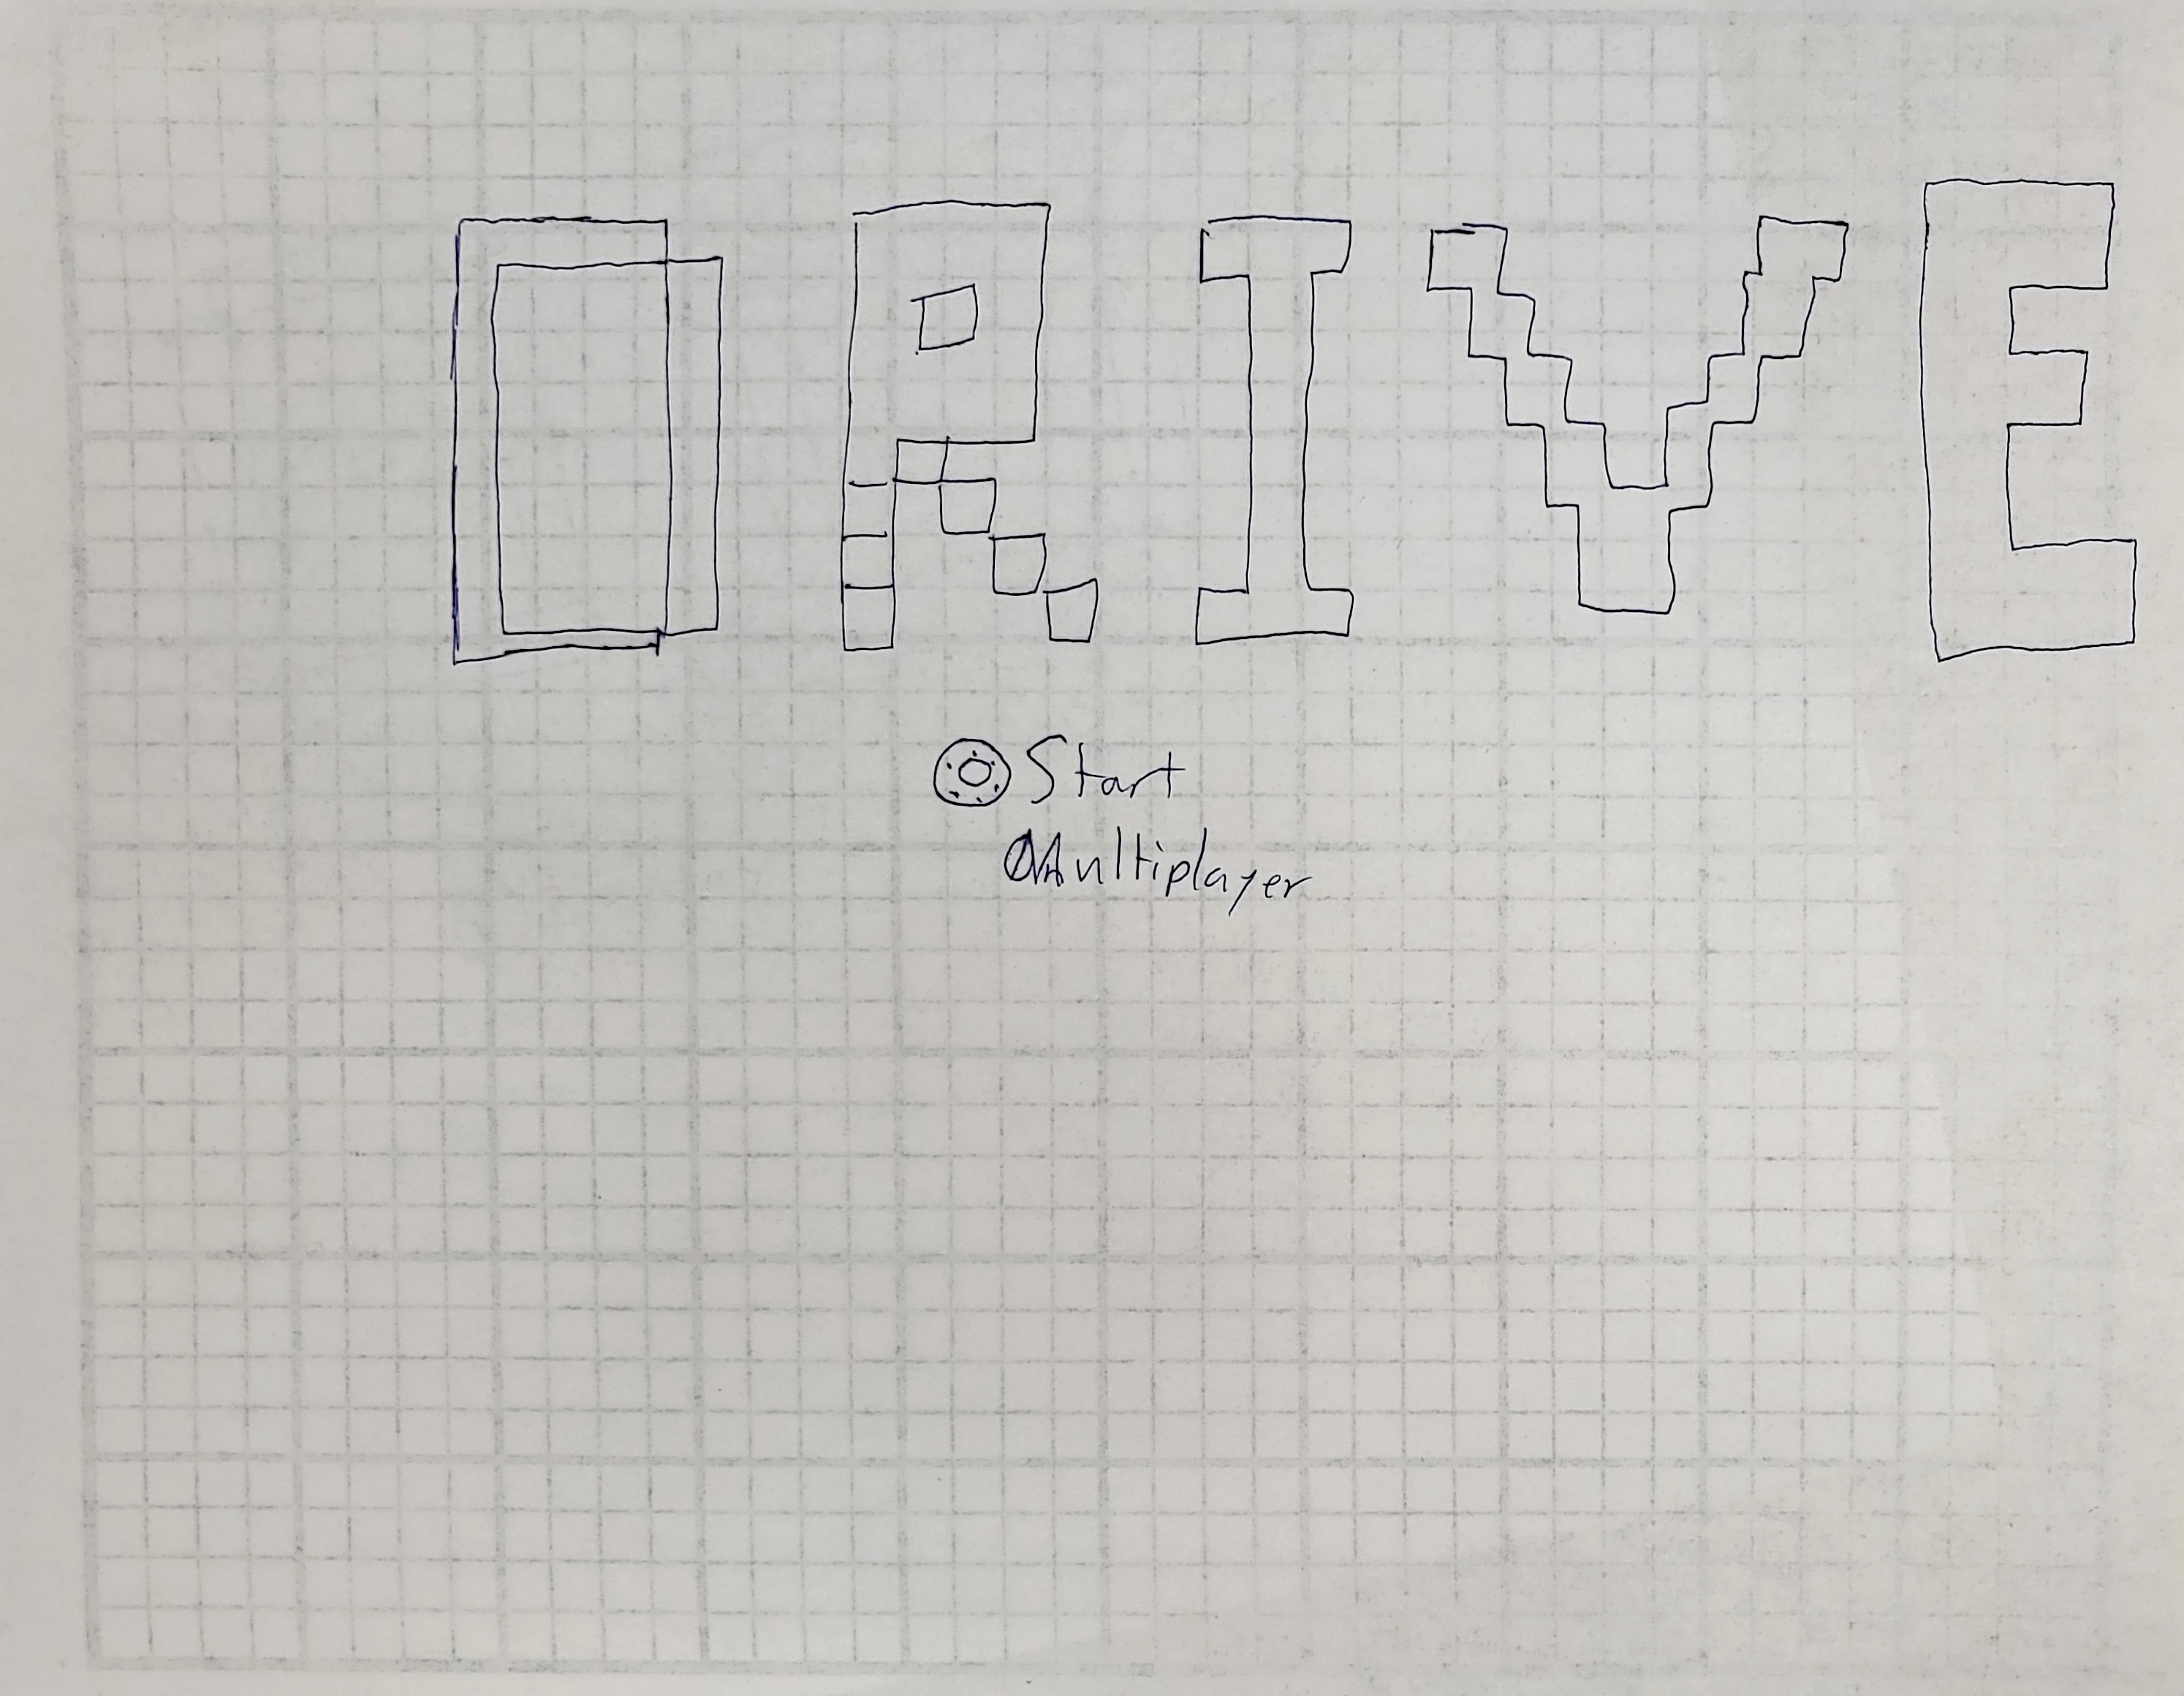 DRIVE
Start
Multiplayer